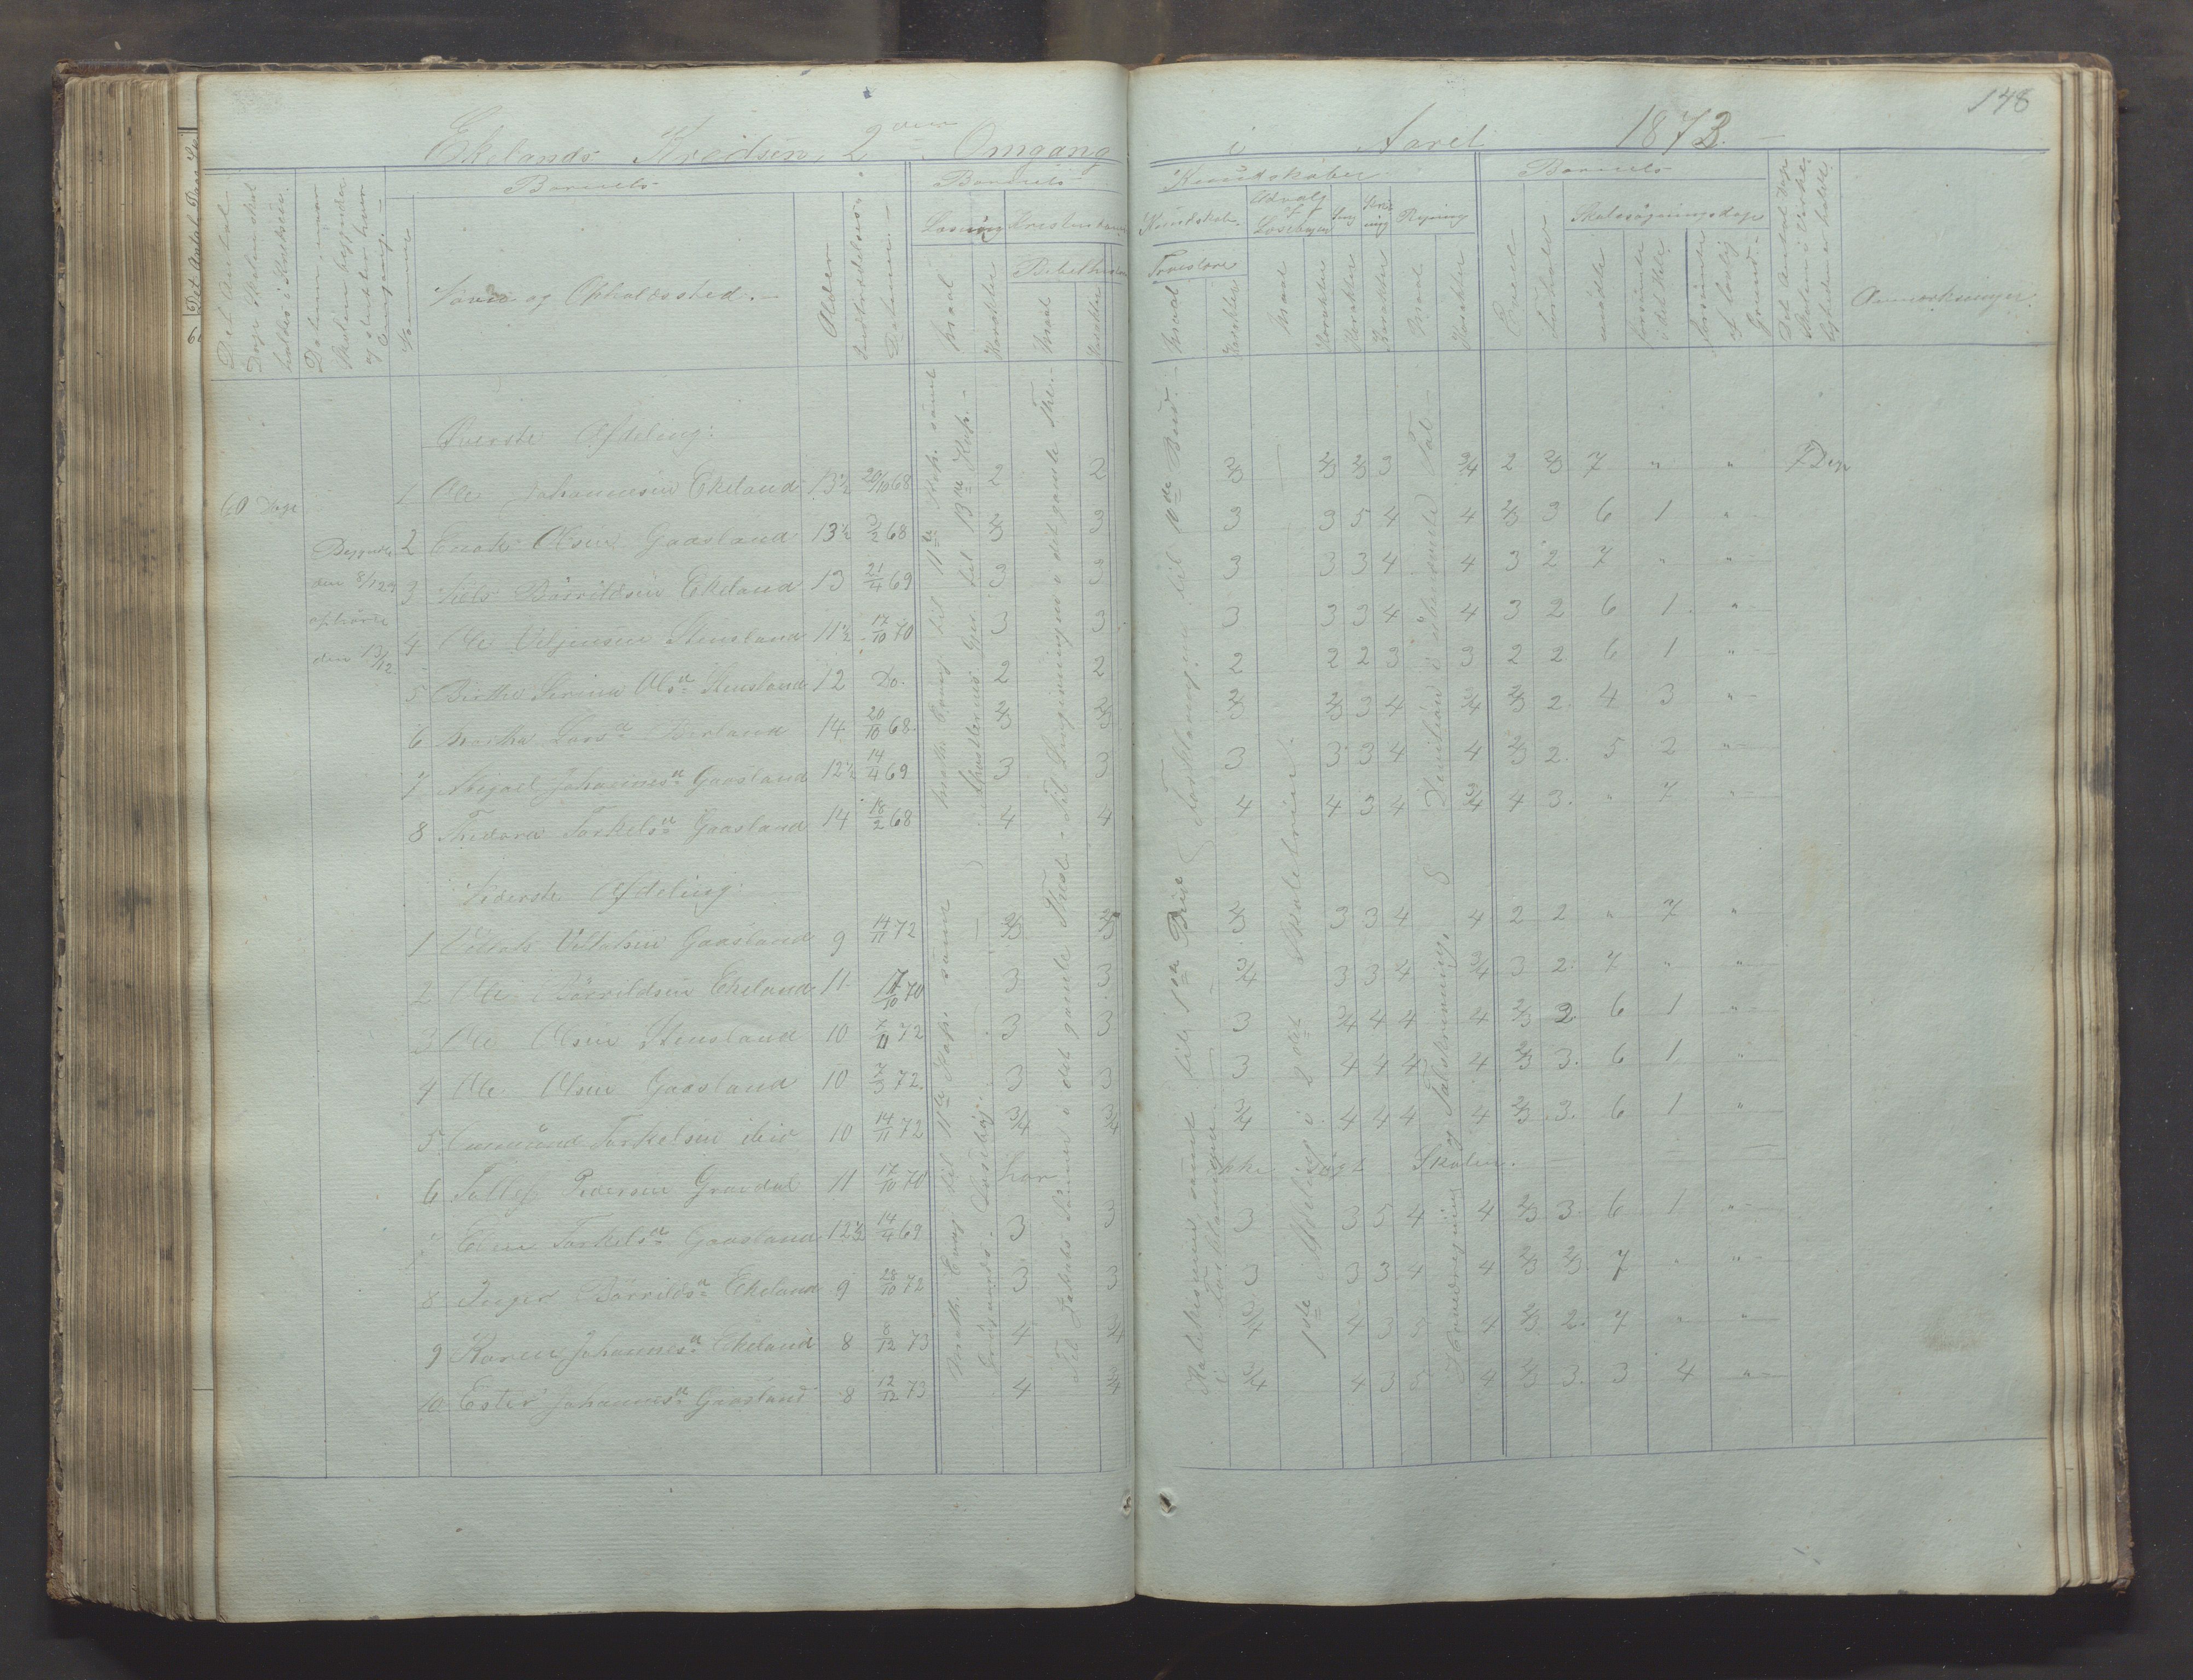 148
Ekelands Kredsen, 2den Omgang i Aaret 1873.
Barnets
Barnets
Kundskaber
Barnets
Det Antal Dage Skolen skal holdes i Kredsen.
Datum, naar Skolen begynder og slutter hver Omgang.
Numer
Navn og Opholdssted.
Alder
Indtrædelses Datum.
Læsning
Kristendoms
Kundskab
Maal
Karakter
Bibelhistorie
Maal
Karakter
Forklare
Maal
Karakter
Udvalg af Læsebogen
Maal
Karakter
Sang
Karakter
Skrivning
Karakter
Regning
Maal
Karakter
Evne
Forhold
Skolesøgningsdage
mødte
forsømte i det Hele
forsømte af lovlig Grund
Det Antal Dage Skolen i Virkeligheden er holdt.
Anmærkninger.
Øverste Afdeling:
60 Dage
Begyndte den 8/12 og ophørte den 13/12
1 Ole Johannesen Ekeland 13½ 20/10 68 2 2 2/3 2/3 2/3 3 3/4 2 2/3 7 " " 7 Dage
2 Enok Olsen Gaasland 13½ 3/2 68 2/3 3 3 3 5 4 4 2/3 3 6 1 "
3 Niels Børrildsen Ekeland 13 21/4 69 3 3 3 3 3 4 4 3 2 7 " "
4 Ole Viljensen Stensland 11½ 17/10 70 3 3 3 3 3 4 4 3 2 6 1 "
5 Birthe Serine Olsd. Stensland 12 Do. 2 2 2 2 2 3 3 2 2 6 1 "
6 Martha Larsd. Birland 14 20/10 68. 2/3 2/3 2/3 2/3 3 4 3/4 2/3 2 4 3 "
7 Abigael Johannesd. Gaasland 12½ 14/4 69 3 3 3 3 3 4 4 2/3 2. 5 2 "
8 Thedora Torkelsd. Gaasland 14 18/2 68 4 4 4 4 3 4 3/4 4 3. " 7 "
Nederste Afdeling:
1 Villads Villadsen Gaasland 9 14/11 72 2/3 2/3 2/3 3 3 4 4 2 2 " 7 "
2 Ole Børrildsen Ekeland 11 17/10 70 3 3 3/4 3 3 4 3/4 3 2. 7 " "
3 Ole Olsen Stensland 10 7/11 72 3 3 3 3/4 4 4 4 2/3 2 6 1 "
4 Ole Olsen Gaasland 10 7/3 72. 3 3 3 4 4 4 4 2/3 3. 6 1 "
5 Aamund Torkelsen ibid 10 14/11 72 3/4 3/4 3/4 4 4 4 4 2/3 3. 6 1 "
6 Tollef Pedersen Gravdal 11 17/10 70 har ikke søgt Skolen.
7 Elen Torkelsd. Gaasland 12½ 14/4 69 3 3 3 3 5 4 4 2/3 3. 6 1 "
8 Inger Børrildsd. Ekeland 9 28/10 72 3 3 3 3 3 4 4 2/3 2/3 7 " "
9 Karen Johannesd. Ekeland 8 8/12 73 4 3/4 3/4 4 3 5 4 2/3 2. 7 " "
10 Ester Johannesd. Gaasland 8 12/12 73 4 3/4 3/4 4 3 5 4 2/3 3. 3 4 "
Math. Evang. til 11te Kap. samt Apostlernes Gjer. til 13de Kap.
Math. Evang. til 11te Kap. samt
til 10de Bud.
Katekismus samt til 1ste Bud i Forklaringen
1ste Afdeling i 2det Skoletrin.
Division i ubenævnte Tal
Hovedregning og Talskrivning.